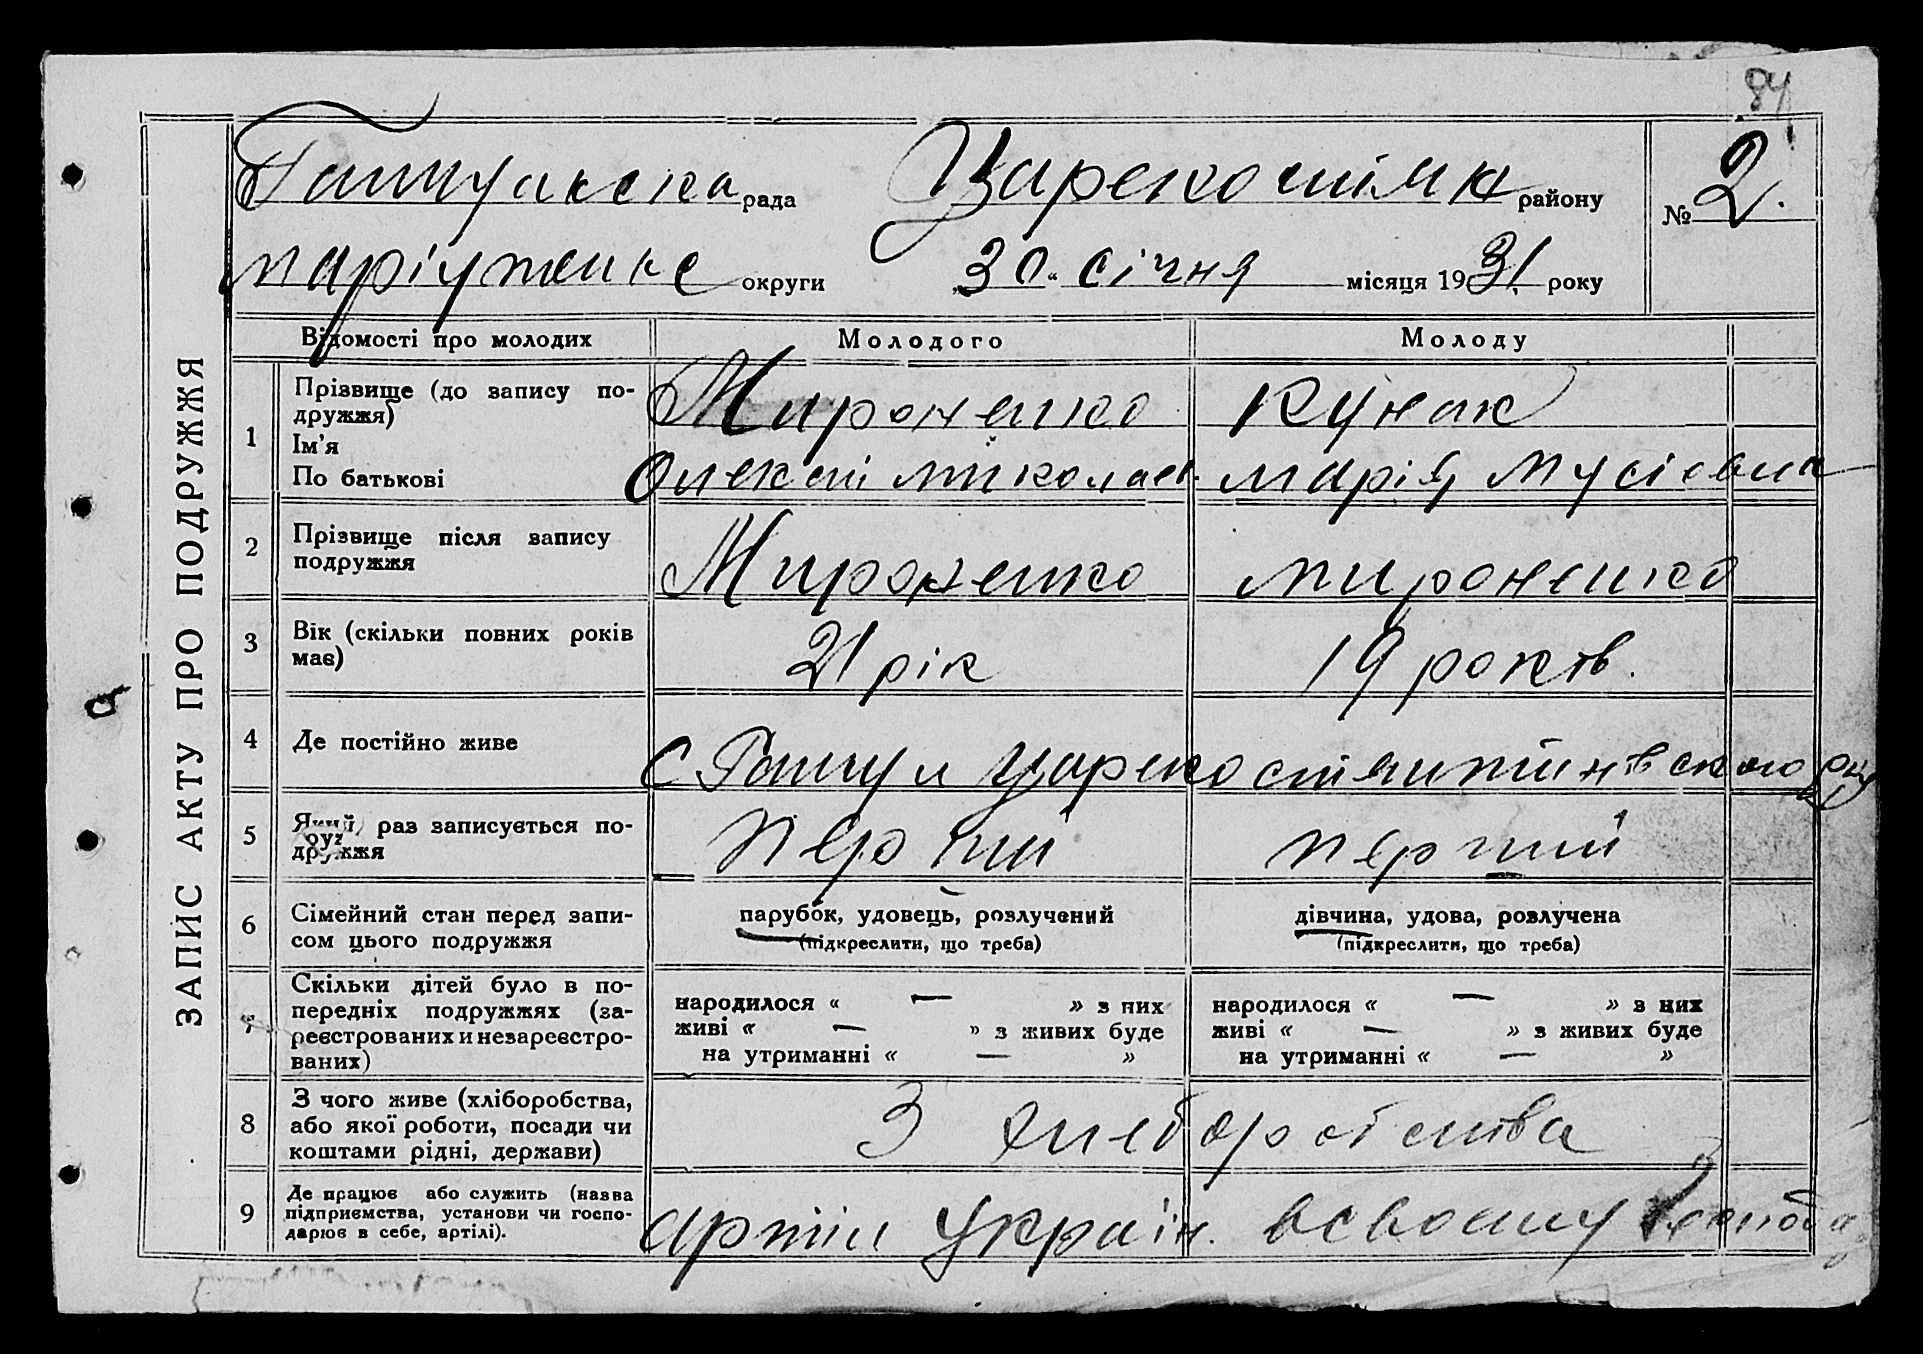 84
рада
району
№ 2.
округи
„30“ січня місяця 1931 року
ЗАПИС АКТУ ПРО ПОДРУЖЖЯ
Відомості про молодих
Молодого
Молоду
1
Прізвище (до запису по-
дружжя)
Ім'я
По батькові
Мироненко
Кунак
Олексій Миколаєв.
Марія Мусієвна
2
Прізвище після запису
подружжя
Мироненко
Мироненко
3
Вік (скільки повних років
має)
21 рік
19 років.
4
Де постійно живе
С
5
Який раз записується по-
дружжя
перший
перший
6
Сімейний стан перед запи-
сом цього подружжя
парубок, удовець, розлучений
(підкреслити, що треба)
дівчина, удова, розлучена
(підкреслити, що треба)
7
Скільки дітей було в по-
передніх подружжях (за-
реєстрованих и незареєстро-
ваних)
народилося « — » з них
живі « — » з живих буде
на утриманні « — »
народилося « — » з них
живі « — » з живих буде
на утриманні « — »
8
З чого живе (хліборобства,
або якої роботи, посади чи
коштами рідні, держави)
З хлеборобства
9
Де працює або служить (назва
підприємства, установи чи госпо-
дарює в себе, артілі).
артіл Україн.